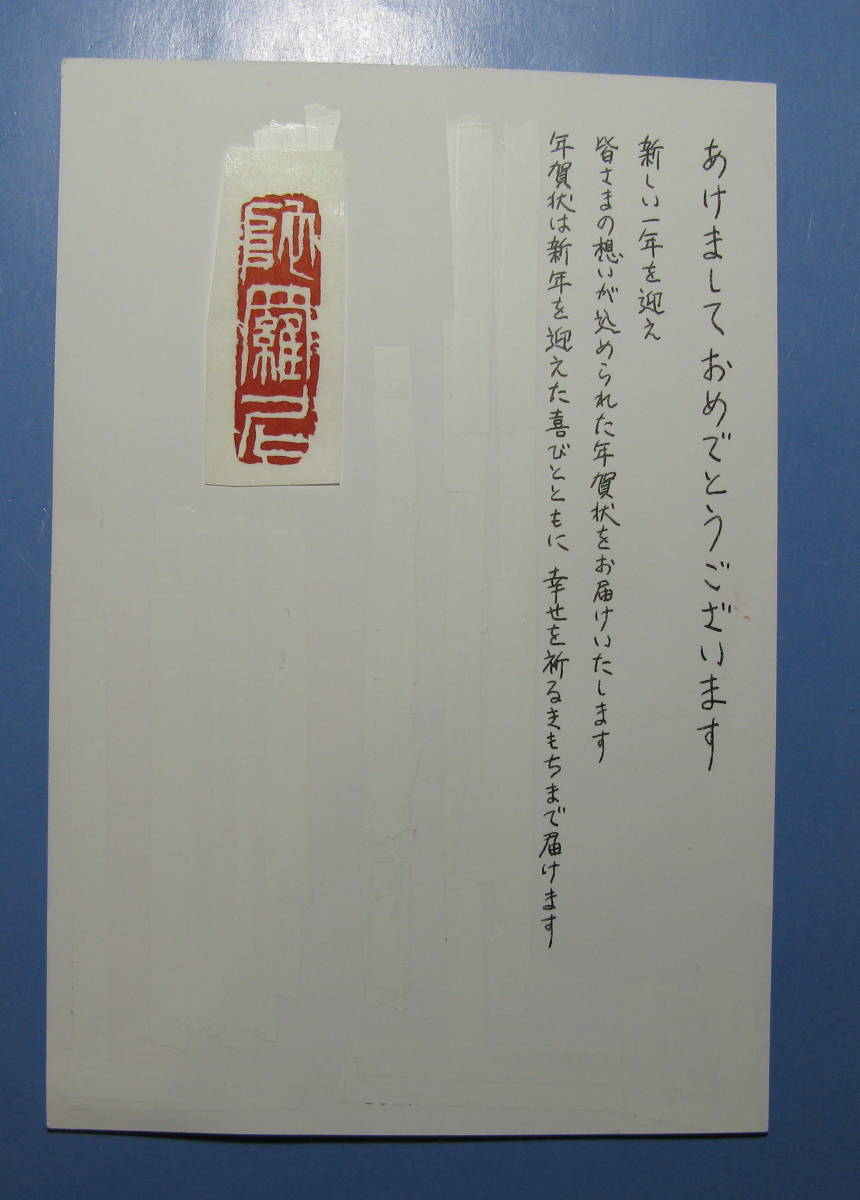 あけましておめでとうございます
新しい一年を迎え
皆さまの想いが込められた年賀状をお届けいたします
年賀状は新年を迎えた喜びとともに 幸せを祈るきもちまで届けます
陀羅尼